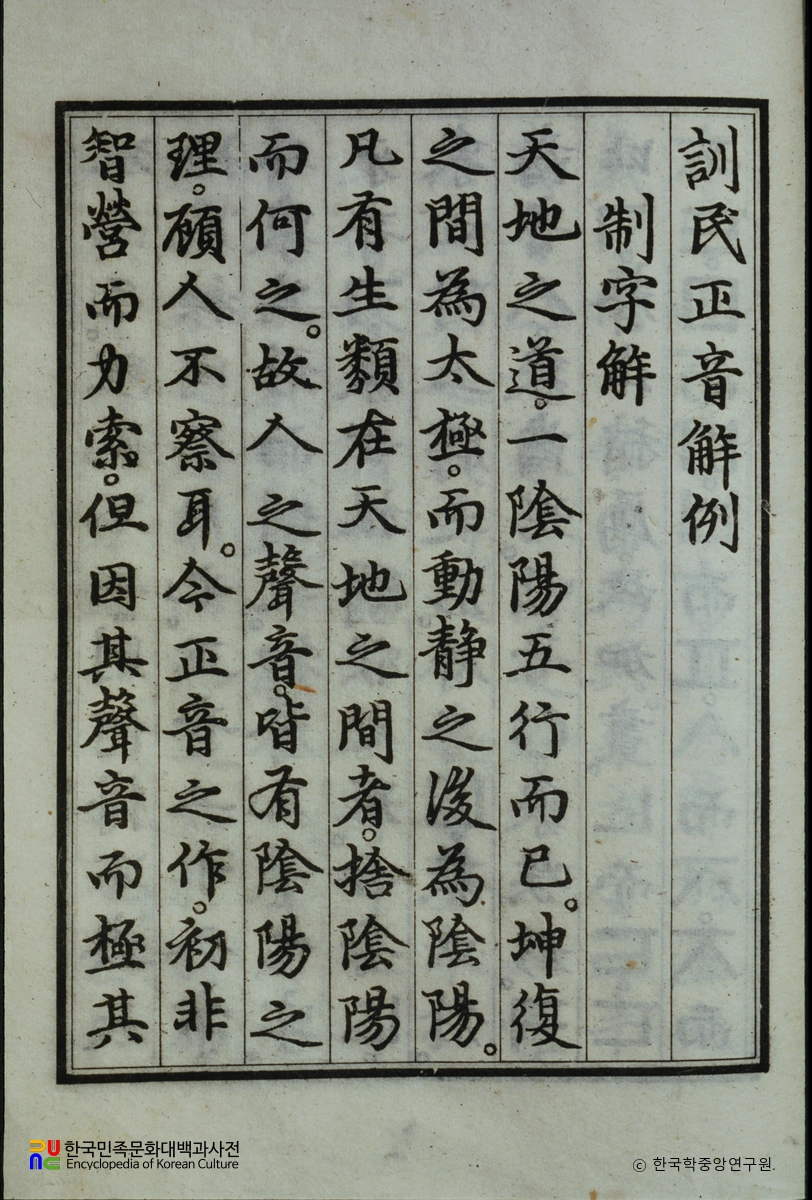 訓民正音解例
制字解
天地之道。一陰陽五行而已。坤復
之間為太極。而動静之後為陰陽。
凡有生類在天地之間者。捨陰陽
而何之。故人之聲音。皆有陰陽之
理。顧人不察耳。今正音之作。初非
智營而力索。但因其聲音而極其
한국민족문화대백과사전
Encyclopedia of Korean Culture
ⓒ 한국학중앙연구원.